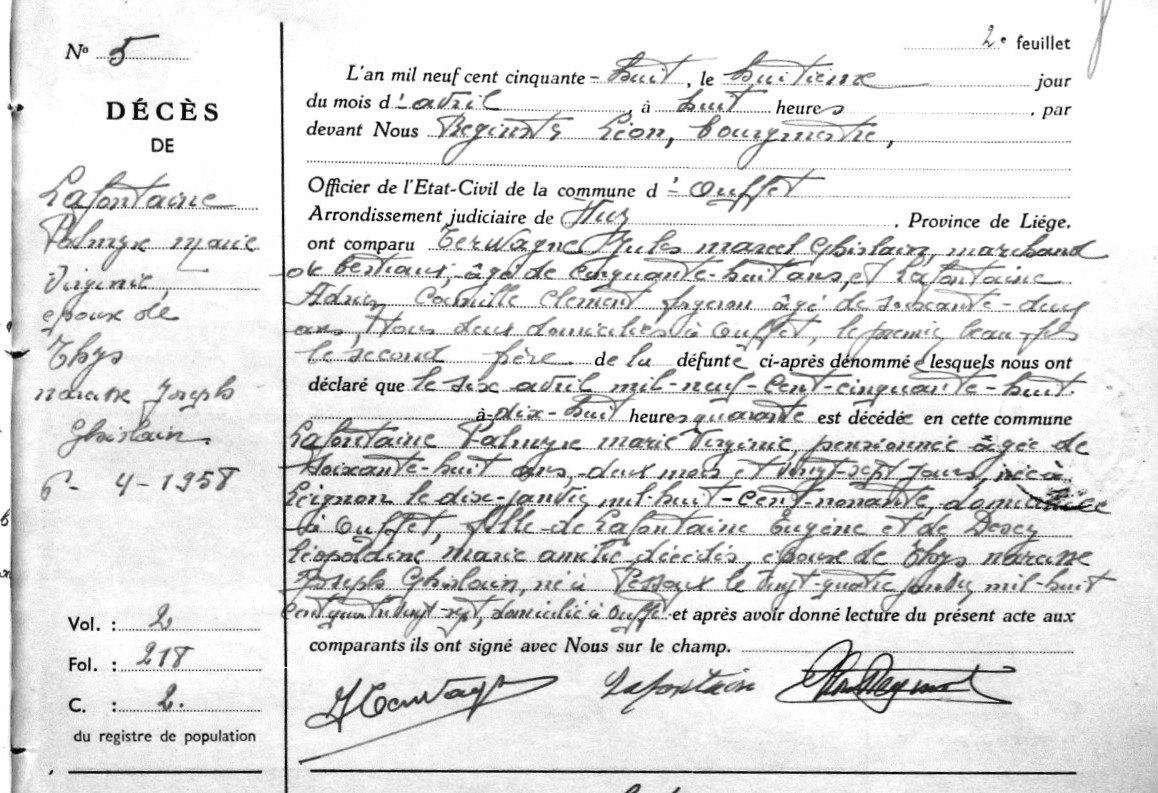 2e feuillet
No 5
DÉCÈS
DE
Lafontaine
Palmyre Marie
Virginie,
époux de
Thys
Joseph
Ghislain
6 - 4 - 1958
Vol. : 2
Fol. : 218
C. : 2.
du registre de population
L'an mil neuf cent cinquante-huit, le huitième jour
du mois d'avril, à huit heures, par
devant Nous Léon, bourgmestre,
Officier de l'Etat-Civil de la commune d'Ouffet
Arrondissement judiciaire de Huy, Province de Liége,
ont comparu Terwagne Jules Marcel Ghislain, marchand
de bestiaux, âgé de cinquante-huit ans, et Lafontaine
Camille Clément âgé de soixante-deux
ans, tous deux domiciliés à Ouffet, le premier beau-fils
le second frère de la défunte ci-après dénommé e lesquels nous ont
déclaré que le six avril mil-neuf-cent-cinquante-huit
à dix-huit heures quarante est décédée en cette commune
Lafontaine Palmyre Marie Virginie, pensionnée âgée de
soixante-huit ans, deux mois et vingt-sept jours, née à
Leignon le dix janvier mil-huit-cent-nonante, domiciliée
à Ouffet, fille de Lafontaine Eugène et de
Léopoldine Marie Amélie, décédés, époux de Thys
Joseph Ghislain, né à Pessoux le vingt-quatre mil-huit
cent quatre vingt sept, domicilié à Ouffet et après avoir donné lecture du présent acte aux
comparants ils ont signé avec Nous sur le champ.
Lafontaine